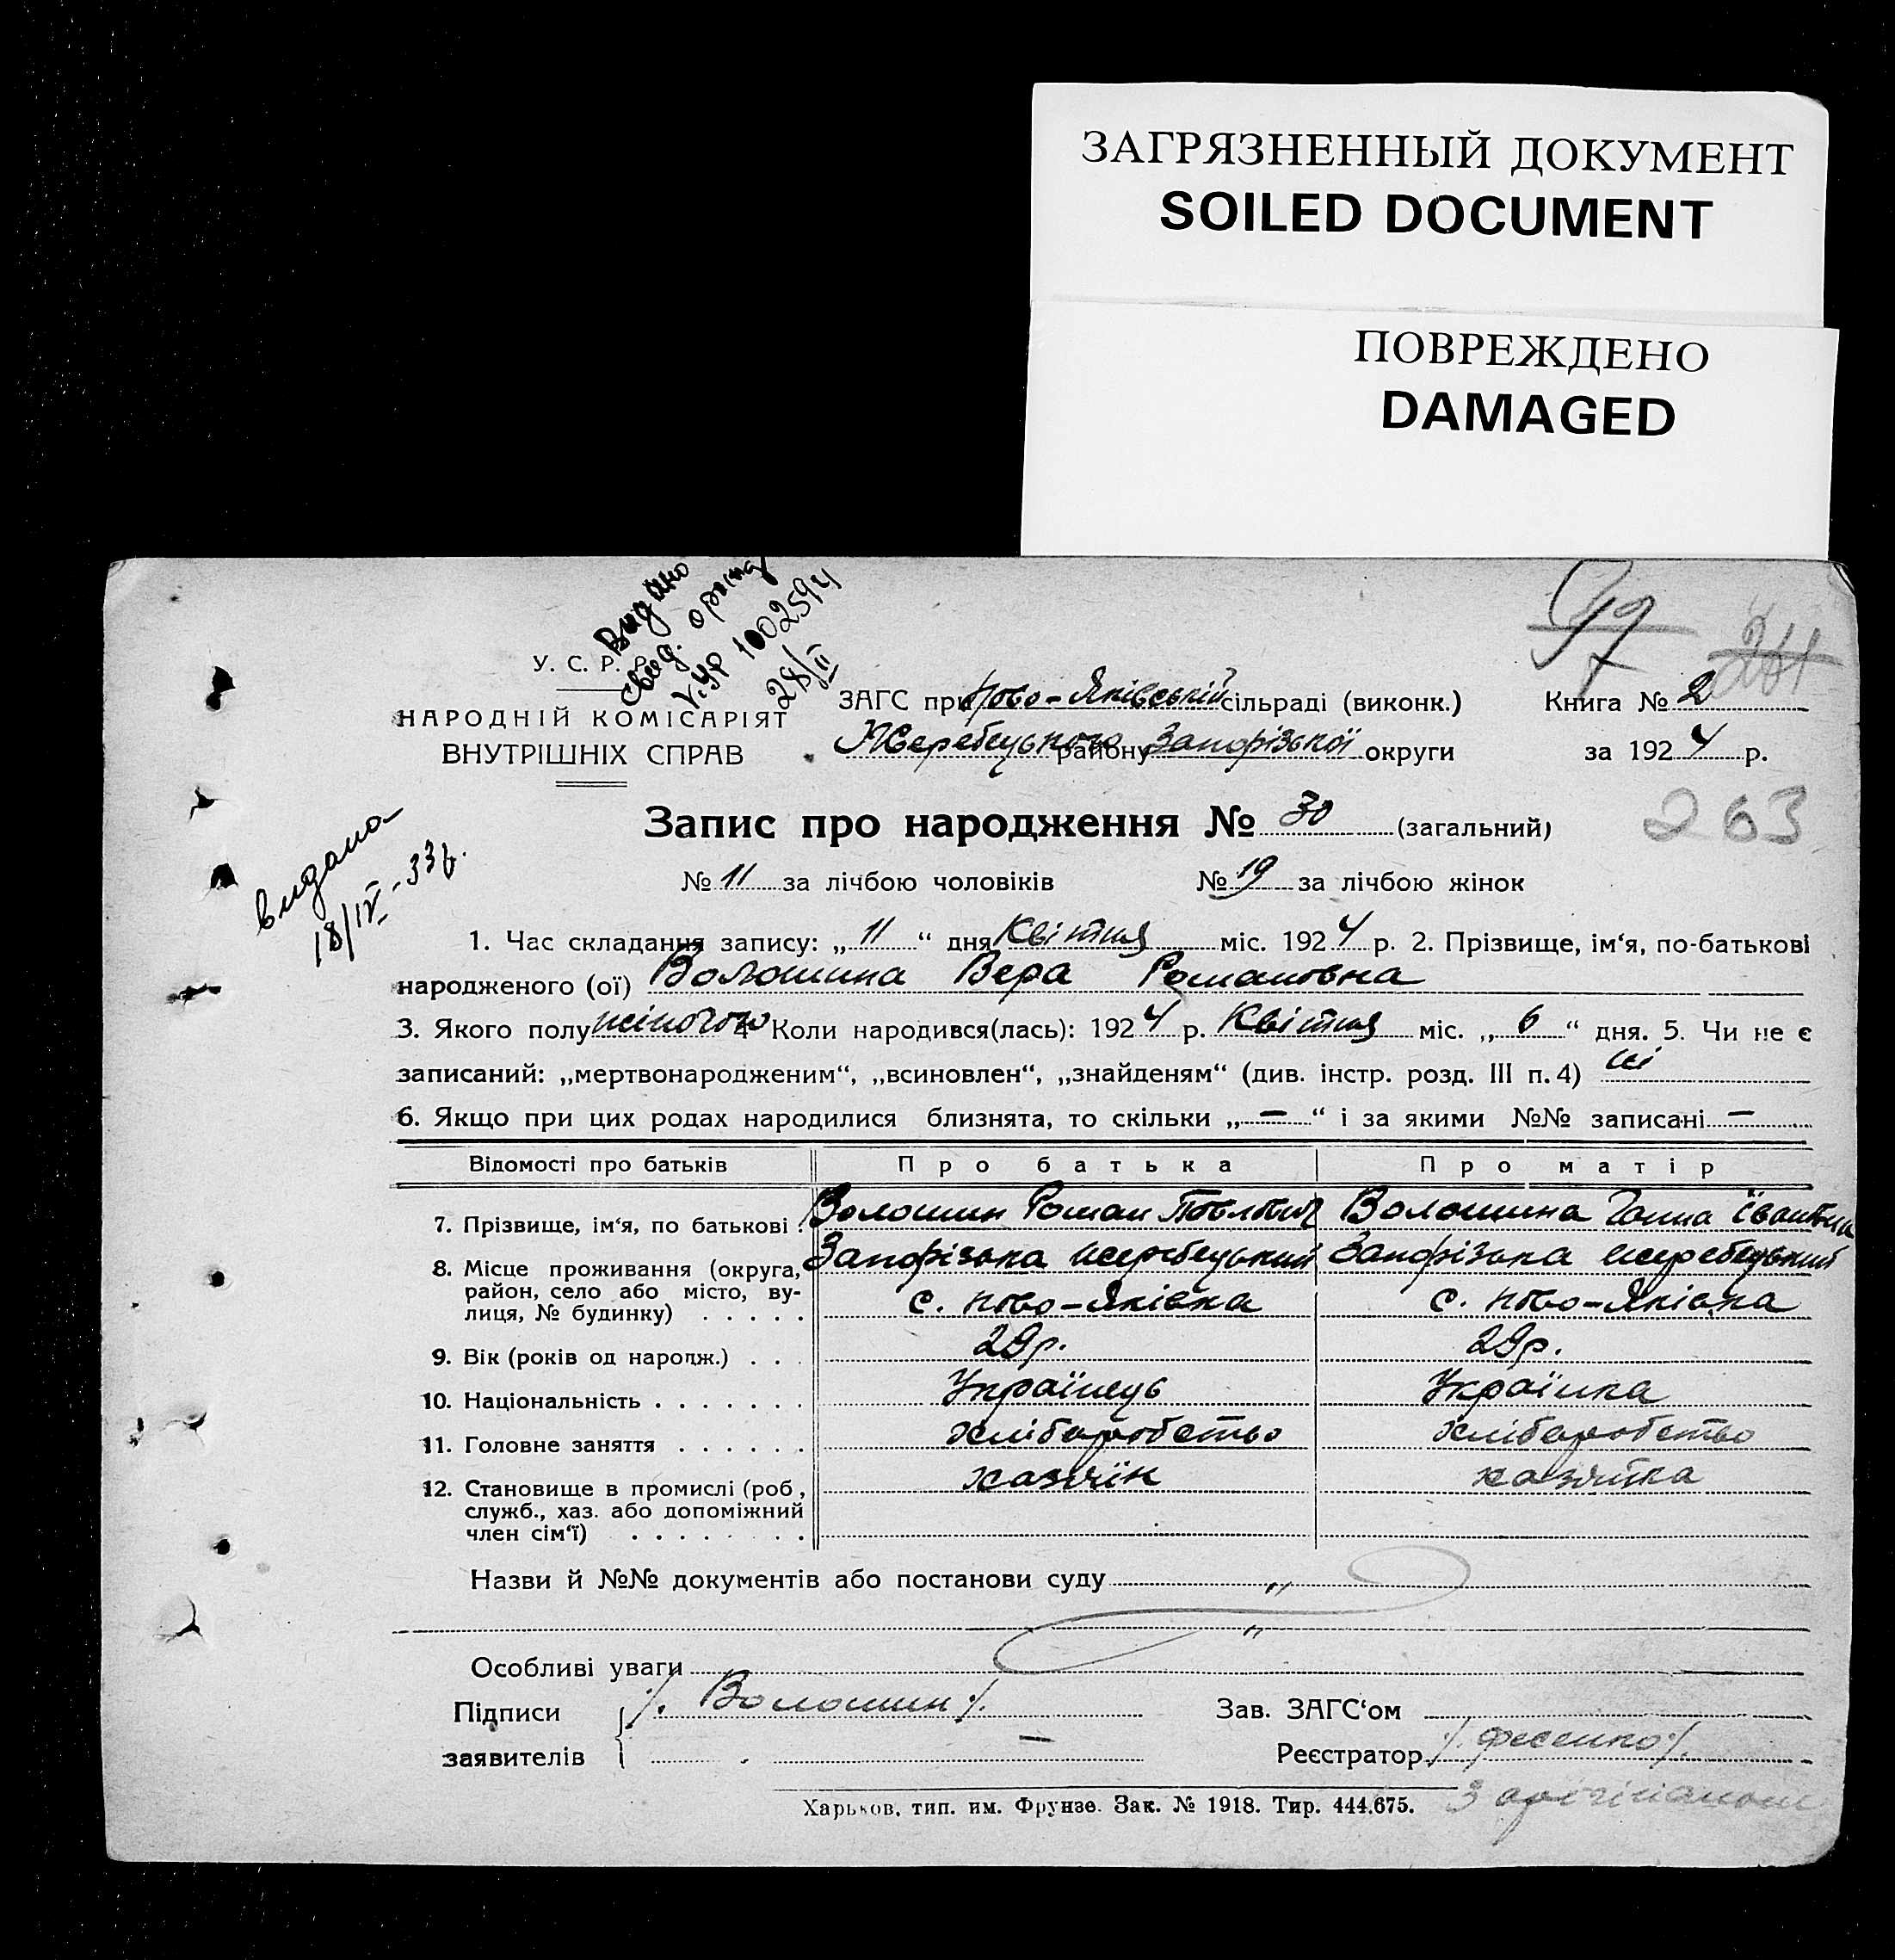 ЗАГРЯЗНЕННЫЙ ДОКУМЕНТ
SOILED DOCUMENT
ПОВРЕЖДЕНО
DAMAGED
97
261
Видано
свід.
V-УР 1002594
28/II
У. С. Р. Р.
НАРОДНІЙ КОМІСАРІЯТ
ВНУТРІШНІХ СПРАВ
ЗАГС при Ново-Яківській сільраді (виконк.) Книга № 2
Жеребецького району Запорізької округи за 1924 р.
263
Запис про народження № 30 (загальний)
видана
18/IV-33р.
№ 11 за лічбою чоловіків № 19 за лічбою жінок
1. Час складання запису: „11“ дня Квітня міс. 1924 р. 2. Прізвище, ім‘я, по-батькові
народженого (ої) Волошина Вера Романовна
3. Якого полу жіночого 4 Коли народився(лась): 1924 р. Квітня міс. „6“ дня. 5. Чи не є
записаний: „мертвонародженим“, „всиновлен“, „знайденям“ (див. інстр. розд. III п. 4) ні
6. Якщо при цих родах народилися близнята, то скільки „—“ і за якими №№ записані —
Відомості про батьків Про батька Про матір
7. Прізвище, ім‘я, по батькові . Волошин Роман Павлович Волошина Ганна Івановна
8. Місце проживання (округа, Запорізька жеребецький Запорізька жеребецький
район, село або місто, ву- с. Ново-Яківка с. Ново-Яківка
лиця, № будинку) . . . . .
9. Вік (років од народж.) . . . 29р. 29р.
10. Національність . . . . . . . Українець Українка
11. Головне заняття . . . . . . хліборобство хліборобство
12. Становище в промислі (роб, хазяїн хазяйка
служб., хаз. або допоміжний
член сім‘ї) . . . . . . .
Назви й №№ документів або постанови суду „
„
Особливі уваги
Підписи /. Волошин /. Зав. ЗАГС‘ом
заявителів — Реєстратор /. Фесенко /.
Харьков, тип. им. Фрунзе. Зак. № 1918. Тир. 444.675.
З оригіналом